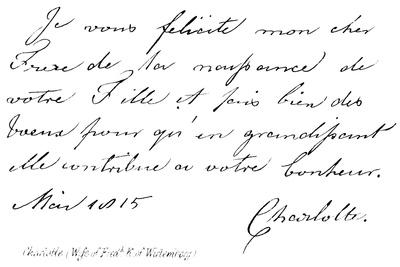 Je vous felicite mon cher
Frere de la naissance de
votre Fille et fais bien des
Voeux pour qu'en grandissant
elle contribue a votre bonheur.
Mai 1815
Charlotte.
Charlotte (Wife of Fredk K. of Wirtemberg)